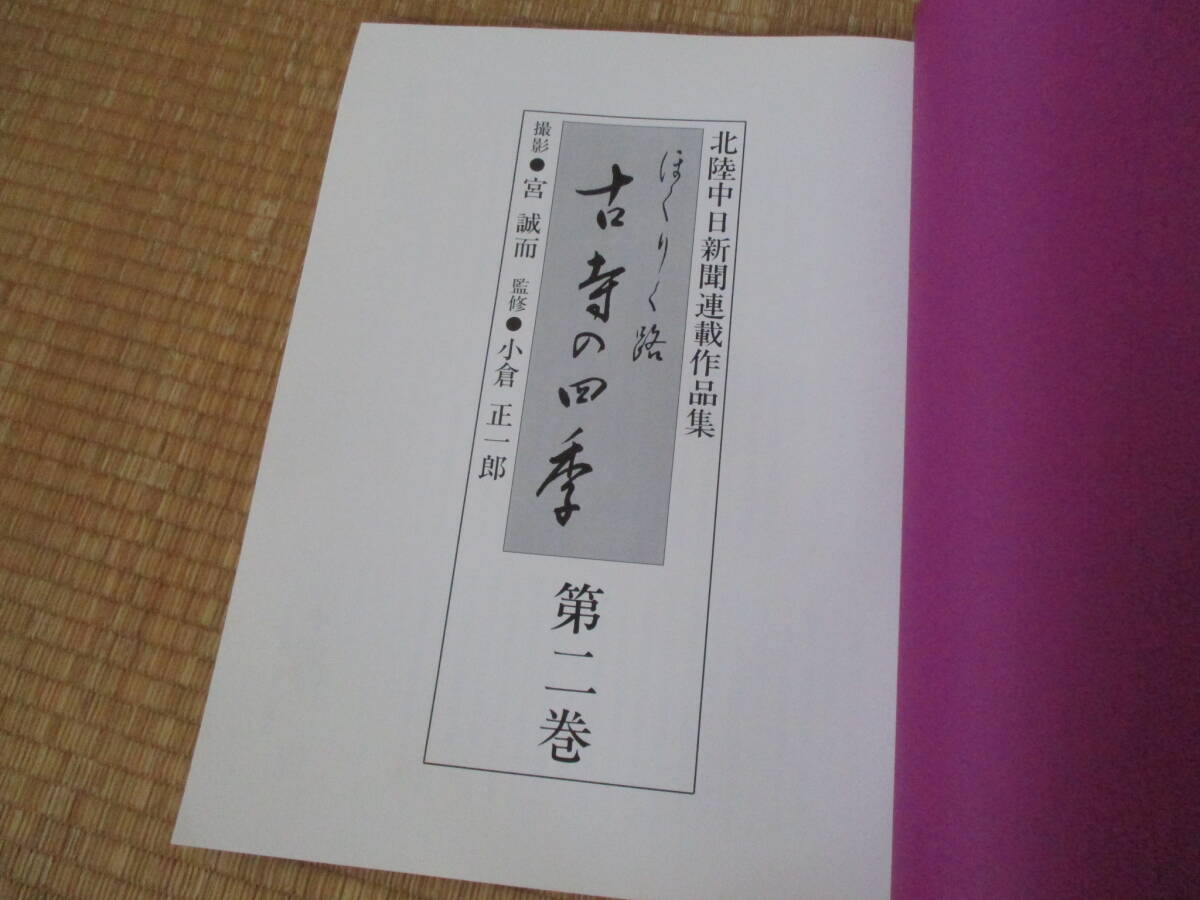 北陸中日新聞連載作品集
ほくりく路
古寺の四季
第二巻
撮影●宮 誠而 監修●小倉 正一郎